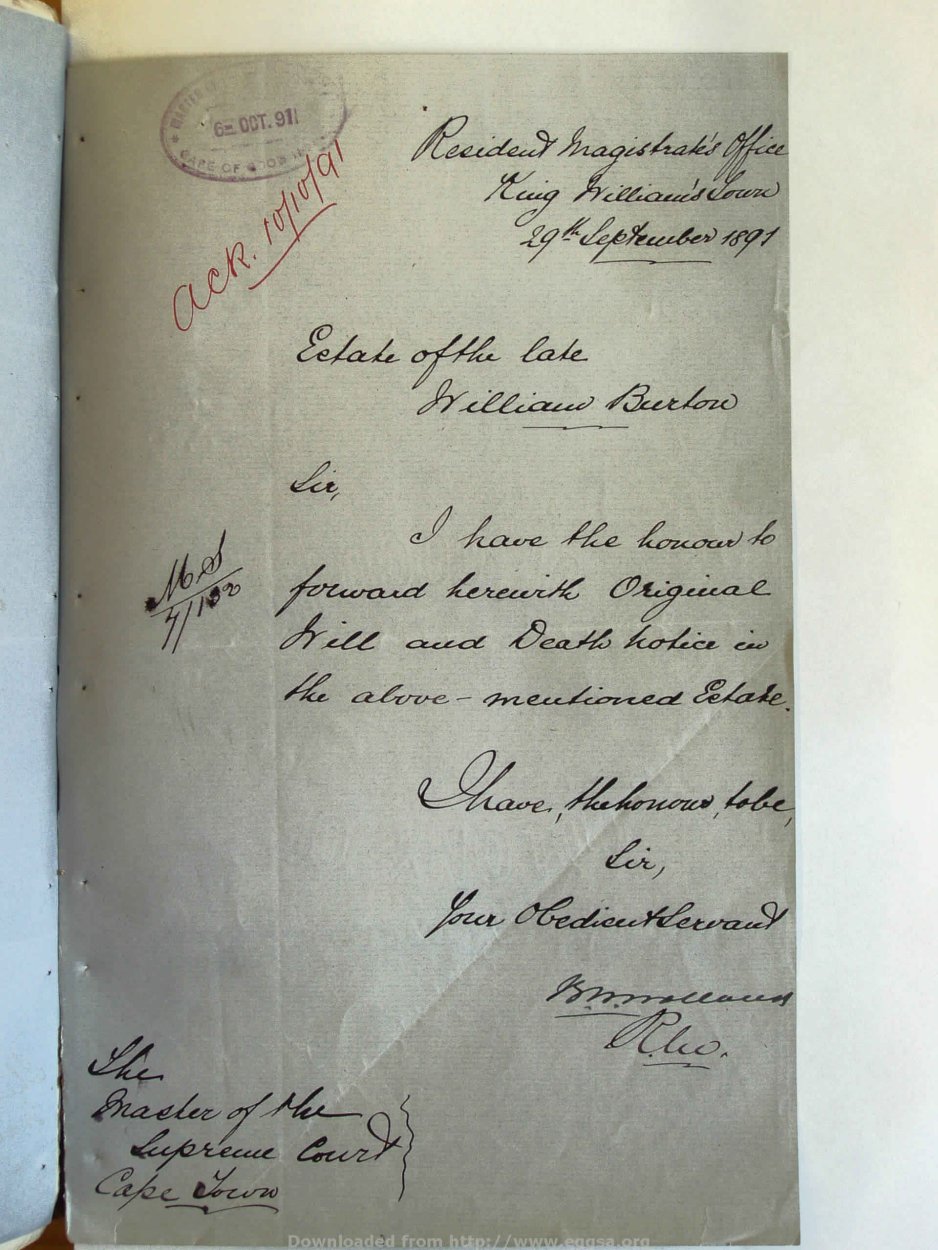 MASTER
6 - OCT. 91
CAPE OF GOOD
ack. 10/10/91
Resident Magistrate's Office
King William's Town
29th September 1891
Estate of the late
William Burton
Sir,
I have the honour to
forward herewith Original
Will and Death Notice in
the above-mentioned Estate.
I have, the honour, to be,
Sir,
Your Obedient Servant
R.M.
The
Master of the
Supreme Court
Cape Town
Downloaded from http://www.eggsa.org